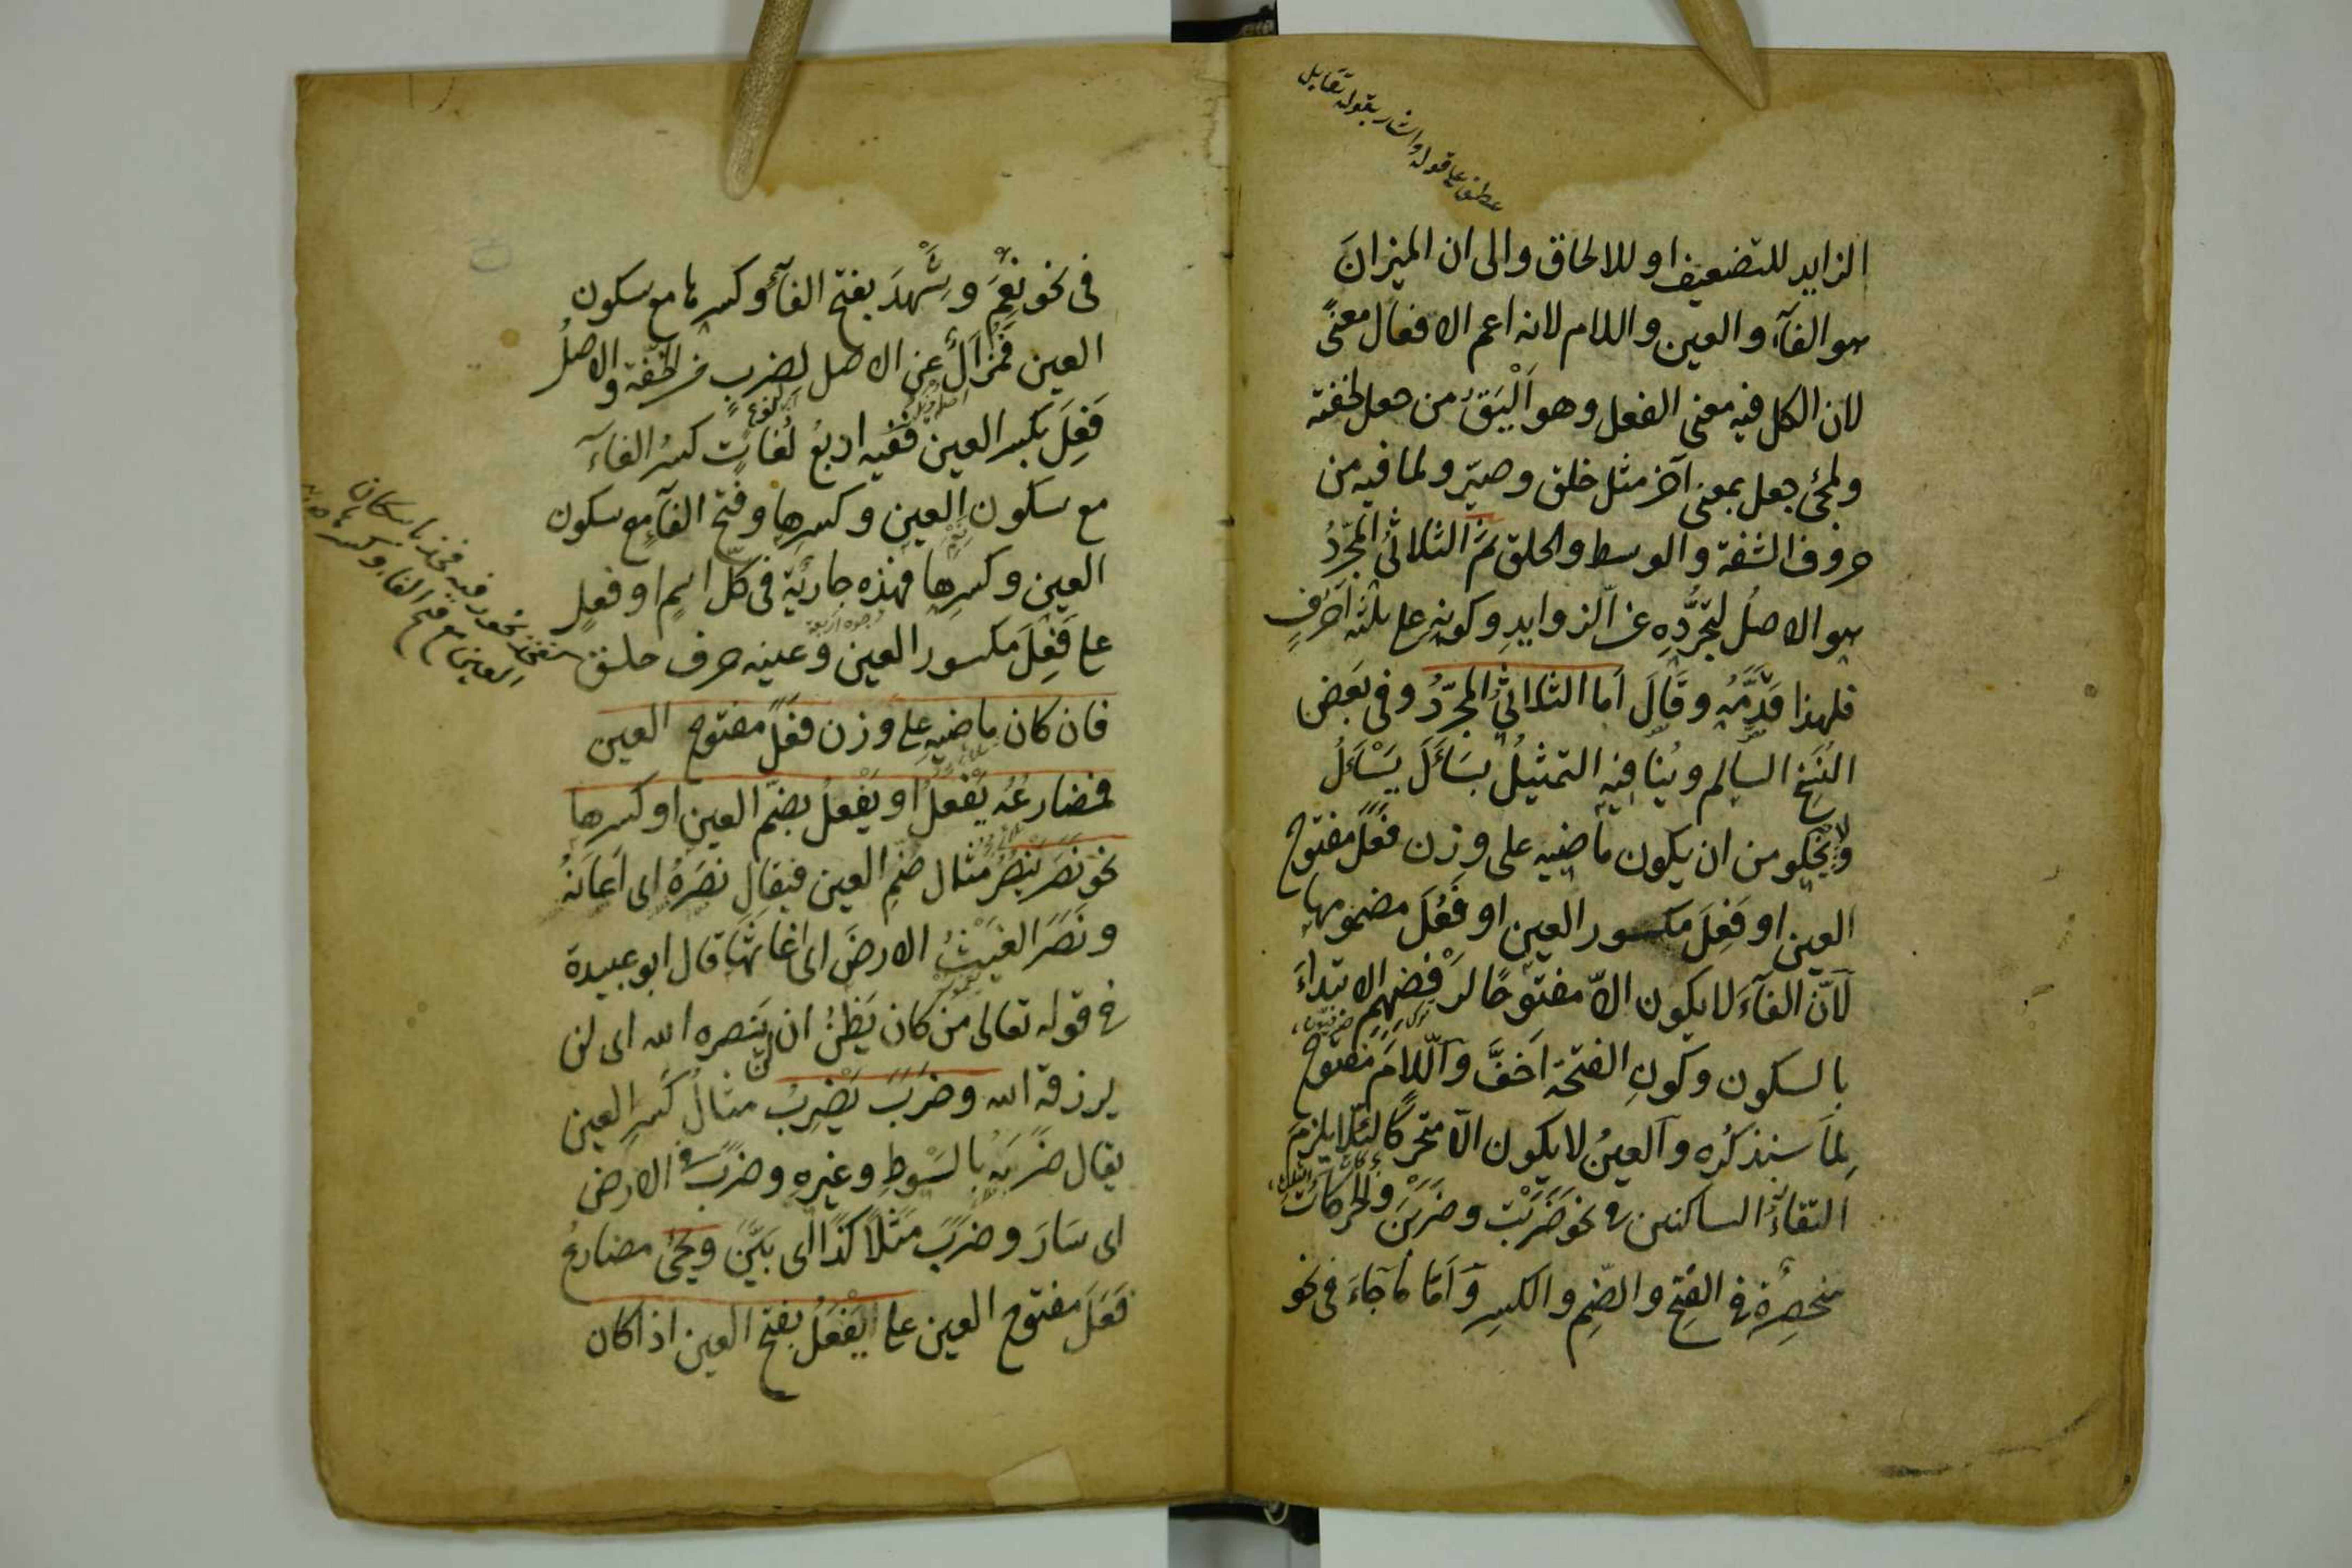 عطف على قوله واشار بقوله تقابل
الزايد للتضعيف او للالحاق والى ان الميزانَ
هو الفآء والعين واللام لانه اعم الافعال معنًى
لان الكل فيه معنى الفعل وهو اَلْيَقُ من جعل لخفته
ولمجئ جعل بمعنى آخر مثل خلق وصيّر ولما فيه من
حروف الشفة والوسط والحلق ثمَّ الثلاثىُّ المجرَّدُ
هو الاصلُ لتجرُّدِهِ عن الزوايدِ وكونِهِ على ثلثة اَحرُفٍ
فلهذا قَدَّمَهُ وقَالَ اَما الثلاثىُّ المجرّدُ وفى بَعَض
النُسَخِ السالم ويُنافِيه التمثيلُ بسَاَلَ يَسْاَلُ
ولا يَخْلو من ان يكون ماضيه على وزن فعَلَ مفتوح
العين او فَعِلَ مكسور العين او فَعُلَ مضمومها
لاَنّ الفآءَ لا يكون الاّ مفتوحًا لرَفْضِهِم الابتداءَ
بالسكون وكونِ الفتحة اَخَفَّ واللّامَ مفتوح
لِمَا سنذكُره والعينُ لا يكون الاّ متحركًا لئلّا يلزمَ
التقآءُ الساكنين فى نحو ضَرَبْتَ وضَرَبْنَ والحركاتُ
منحصِرةٌ فى الفتحِ والضمِ والكسرِ وَاَمّا مَا جَاءَ فى نحو
فى نحو نِعْمَ وشَهْدَ بفتح الفآءِ وكسرها مع سكون
العين فمُزَالٌ عن الاصل لضربٍ من الخفّة والاصلُ
فَعِلَ بكسر العين ففيه اربعُ لُغَاتٍ كسرُ الفآءِ
مع سكون العين وكسرِها وفتحُ الفآءِ مع سكون
العين وكسرِها فهذه جاريَةٌ فى كلّ اسمٍ او فعلٍ
على فَعِلَ مكسور العين وعينه حرف حلق
فان كان ماضيه على وزن فعَلَ مفتوح العين
فمضارعُه يَفْعُلُ او يَفْعِلُ بضمّ العين او كسرها
نحو نَصَرَ يَنصُرُ مثال ضمِ العين فيقال نَصَرَهُ اى اَعَانَهُ
ونَصَرَ الغَيْثُ الارضَ اى اَغَاثَهَا قال ابو عبيدة
فى قوله تعالى من كان يَظُنُّ ان لن ينصره الله اى لن
يرزقه الله وضَرَبَ يَضْرِبُ مثالُ كَسرِ العين
يقال ضَرَبَهُ بالسَوْطِ وغيرِهِ وضرَبَ فى الارض
اى سَارَ وضرَبَ مَثَلًا كَذَا اى بَيَّنَ ويجئ مضارعُ
فَعَلَ مفتوح العين على يَفْعَلُ بفتح العين اذا كان
العين مع فتح الفاء وكسرها